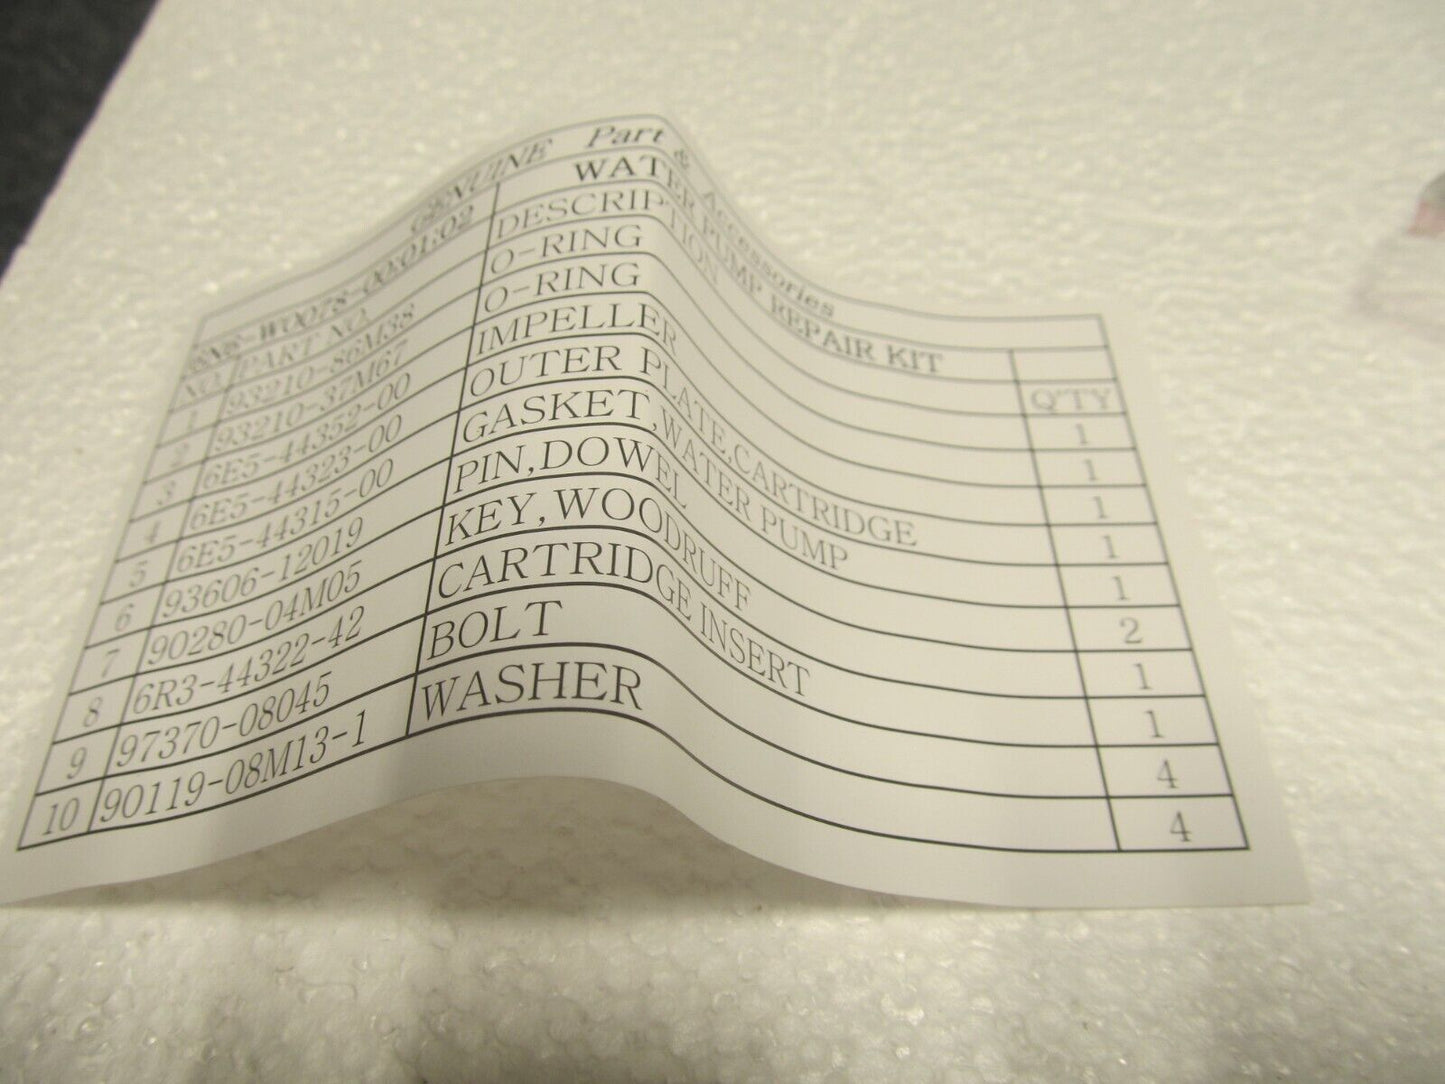 GENUINE Part & Accessories
6N6-W0078-00:01:02 WATER PUMP REPAIR KIT
NO. PART NO. DESCRIPTION Q'TY
1 93210-86M38 O-RING 1
2 93210-37M67 O-RING 1
3 6E5-44352-00 IMPELLER 1
4 6E5-44323-00 OUTER PLATE,CARTRIDGE 1
5 6E5-44315-00 GASKET,WATER PUMP 1
6 93606-12019 PIN,DOWEL 2
7 90280-04M05 KEY,WOODRUFF 1
8 6R3-44322-42 CARTRIDGE INSERT 1
9 97370-08045 BOLT 4
10 90119-08M13-1 WASHER 4